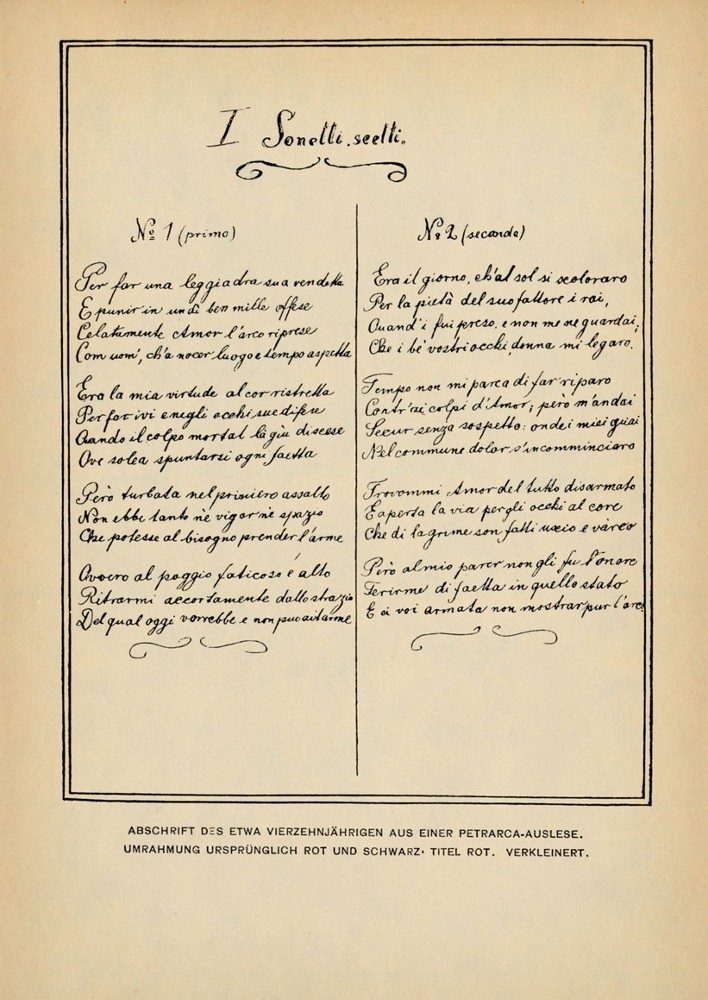 I Sonetti scelti.
Nº 1 (primo)
Per far una leggiadra sua vendetta
E punir in un dì ben mille offese
Celatamente Amor l'arco riprese
Com uom', ch'a nocer luogo e tempo aspetta
Era la mia virtude al cor ristretta
Per far ivi e negli occhi sue difese
Quando il colpo mortal là giù discese
Ove solea spuntarsi ogni saetta
Però turbata nel primiero assalto
Non ebbe tanto nè vigor nè spazio
Che potesse al bisogno prender l'arme
Ovvero al poggio faticoso e alto
Ritrarmi accortamente dallo strazio
Del qual oggi vorrebbe e non può aitarme
Nº 2 (secondo)
Era il giorno, ch'al sol si scoloraro
Per la pietà del suo fattore i rai,
Quand'i fui preso, e non me ne guardai,
Che i be' vostri occhi, donna mi legaro.
Tempo non mi parea di far riparo
Contr'ai colpi d'Amor; però m'andai
Secur senza sospetto: onde i miei guai
Nel commune dolor s'incominciaro
Trovommi Amor del tutto disarmato
E aperta la via per gli occhi al core
Che di lagrime son fatti uscio e varco
Però al mio parer non gli fu l'onore
Ferirme di saetta in quello stato
E a voi armata non mostrar pur l'arco
ABSCHRIFT DES ETWA VIERZEHNJÄHRIGEN AUS EINER PETRARCA-AUSLESE.
UMRAHMUNG URSPRÜNGLICH ROT UND SCHWARZ· TITEL ROT. VERKLEINERT.